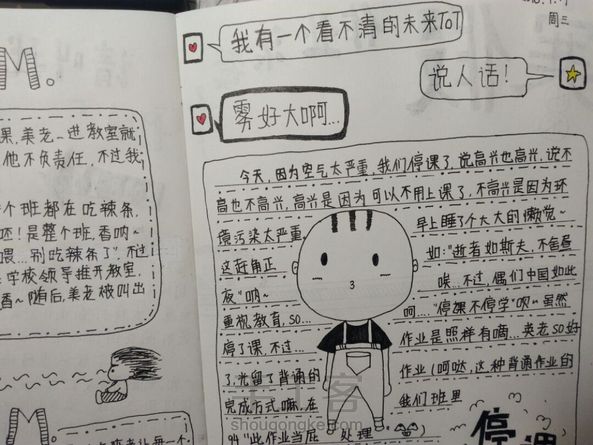 M。
课,美老一进教室就
他不负责任,不过我
个班都在吃辣条,
呸!是整个班,香呐~
喂...别吃辣条了".不过
学校领导推开教室,
香~随后,美老被叫出
M。
周三
我有一个看不清的未来ToT
说人话!
雾好大啊可...
今天,因为空气太严重,我们停课了,说高兴也高兴,说不
高也不高兴,高兴是因为可以不用上课了,不高兴是因为环
境污染太严重,
早上睡了个大大的懒觉~
如:"逝者如斯夫,不舍昼
夜"呐~
唉...不过,偶们中国如此
重视教育,so...
呵...."停课不停学"呗~虽然
停了课,不过...
作业是照样有嘀...英老so好
了,光留了背诵的
作业(呵哒,这种背诵作业的
完成方式嘛,在
我们班里
"此作业当屁 处理
停课
shougongke.com